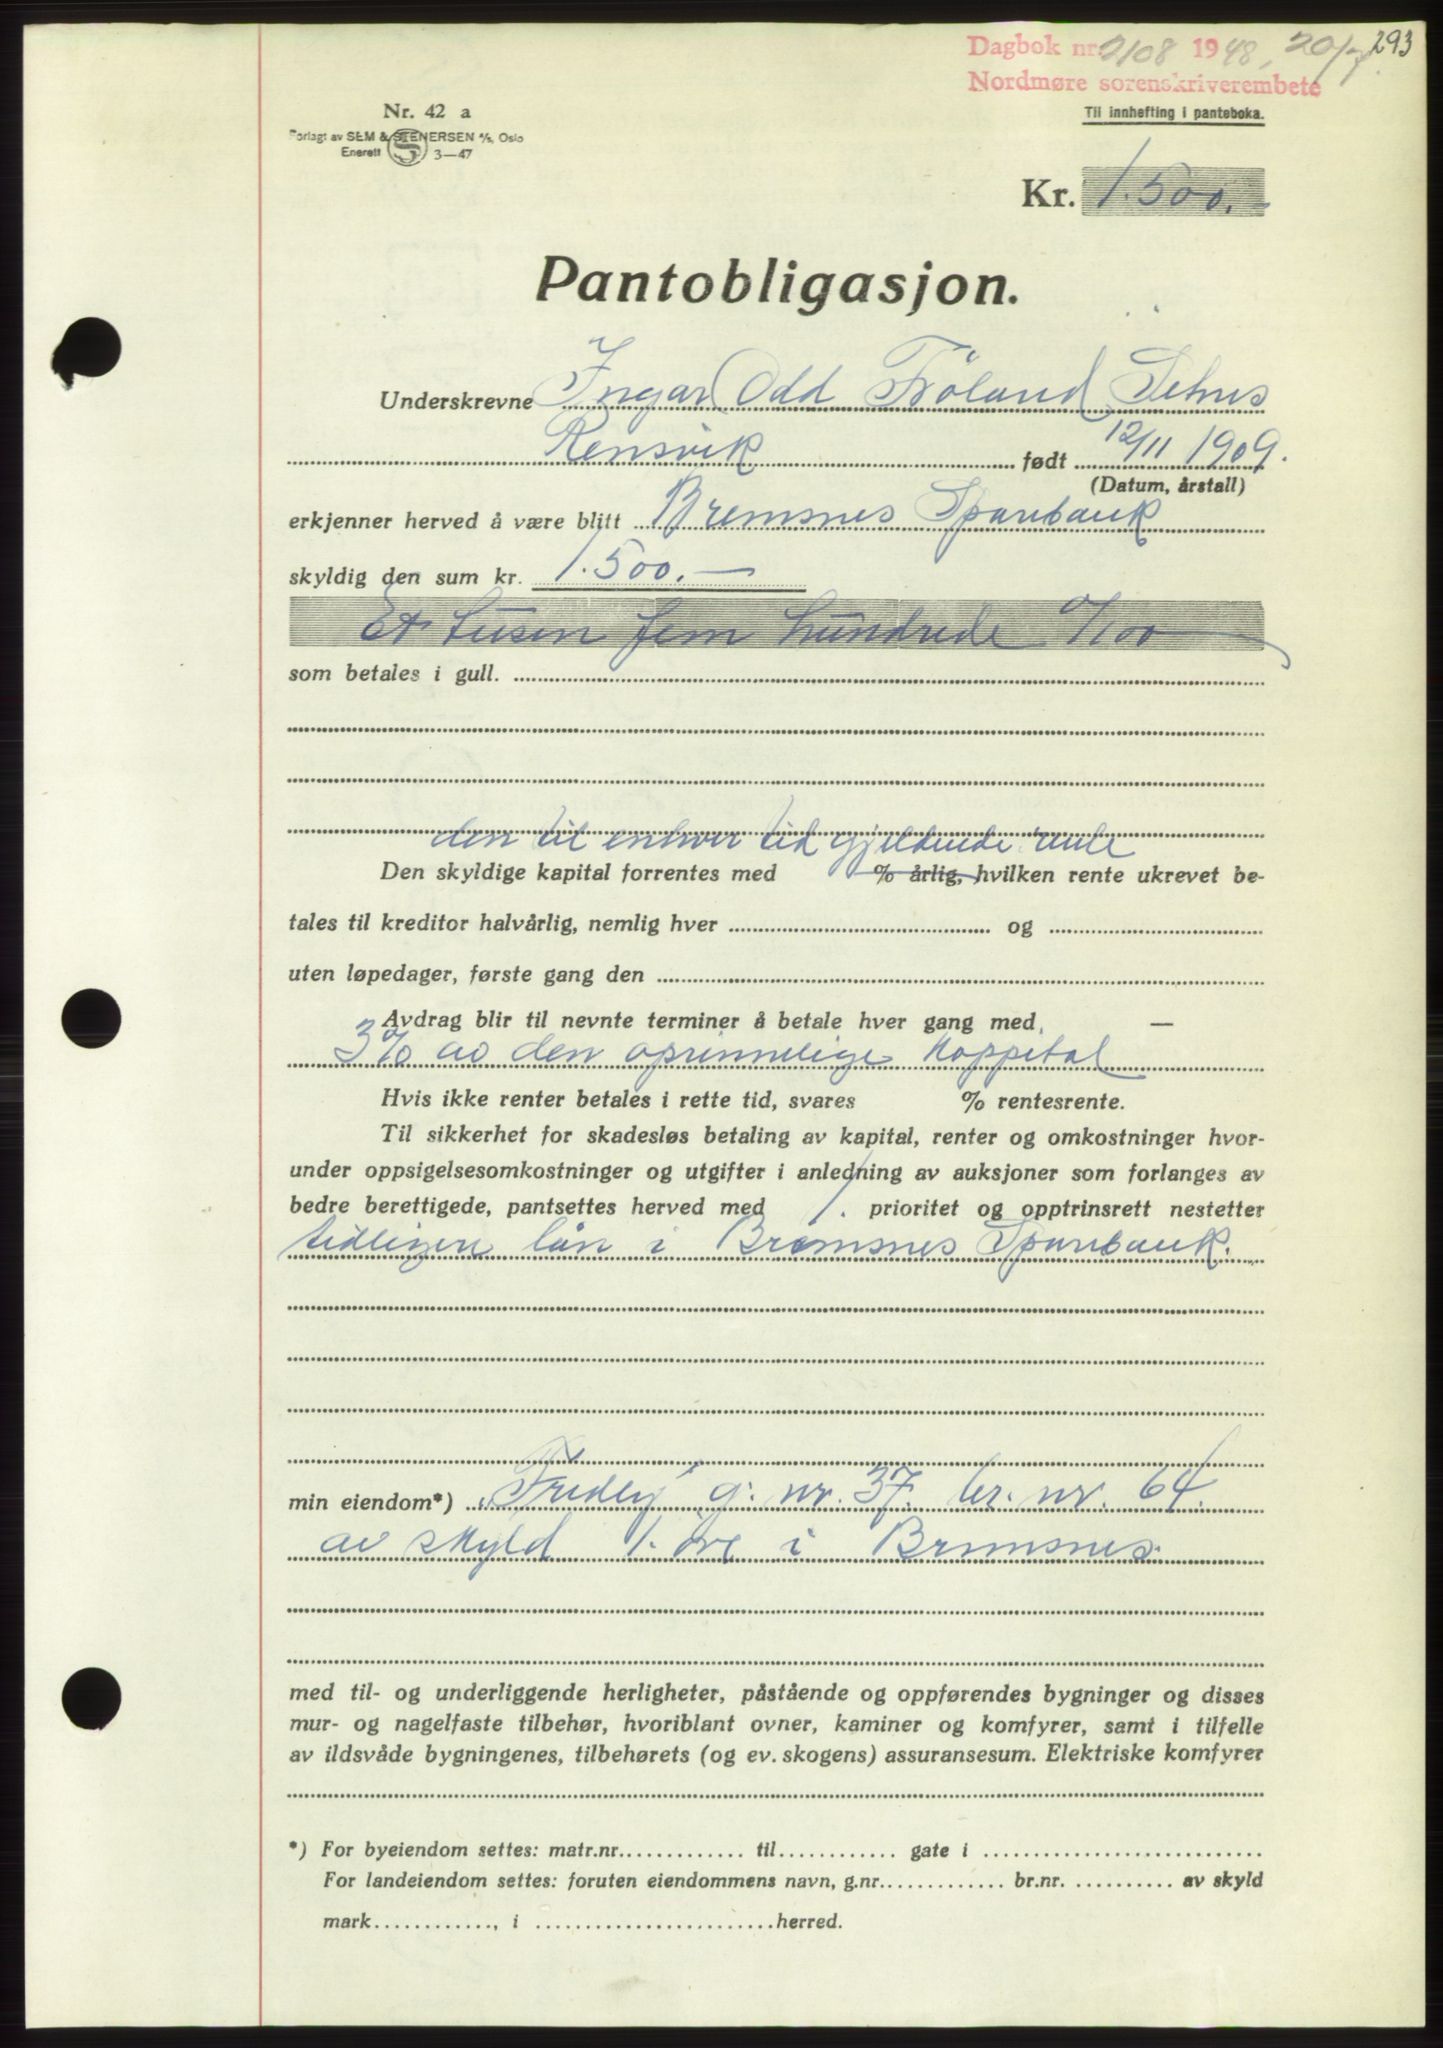 Dagbok nr. 2108 1948, 20/7 293
Nordmøre sorenskriverembete
Nr. 42 a
Til innhefting i panteboka.
Forlagt av SEM & STENERSEN A/S, Oslo
Enerett S 3—47
Kr. 1.500.-
Pantobligasjon.
Underskrevne Ingar Odd Fröland
Rensvik født 12/11 1909.
(Datum, årstall)
erkjenner herved å være blitt Bremsnes Sparebank
skyldig den sum kr. 1.500.—
Et tusen fem hundrede 0/100
som betales i gull.
den til enhver tid gjeldende rente
Den skyldige kapital forrentes med % årlig, hvilken rente ukrevet be-
tales til kreditor halvårlig, nemlig hver og
uten løpedager, første gang den
Avdrag blir til nevnte terminer å betale hver gang med —
3% av den oprinnelige kappital
Hvis ikke renter betales i rette tid, svares % rentesrente.
Til sikkerhet for skadesløs betaling av kapital, renter og omkostninger hvor-
under oppsigelsesomkostninger og utgifter i anledning av auksjoner som forlanges av
bedre berettigede, pantsettes herved med 1. prioritet og opptrinsrett nestetter
tidligere lån i Bremsnes Sparebank.
min eiendom*) „Fredly" g. nr. 37. br. nr. 64.
av skyld 1. øre i Bremsnes.
med til- og underliggende herligheter, påstående og oppførendes bygninger og disses
mur- og nagelfaste tilbehør, hvoriblant ovner, kaminer og komfyrer, samt i tilfelle
av ildsvåde bygningenes, tilbehørets (og ev. skogens) assuransesum. Elektriske komfyrer
*) For byeiendom settes: matr.nr. til gate i
For landeiendom settes: foruten eiendommens navn, g.nr. br.nr. av skyld
mark , i herred.